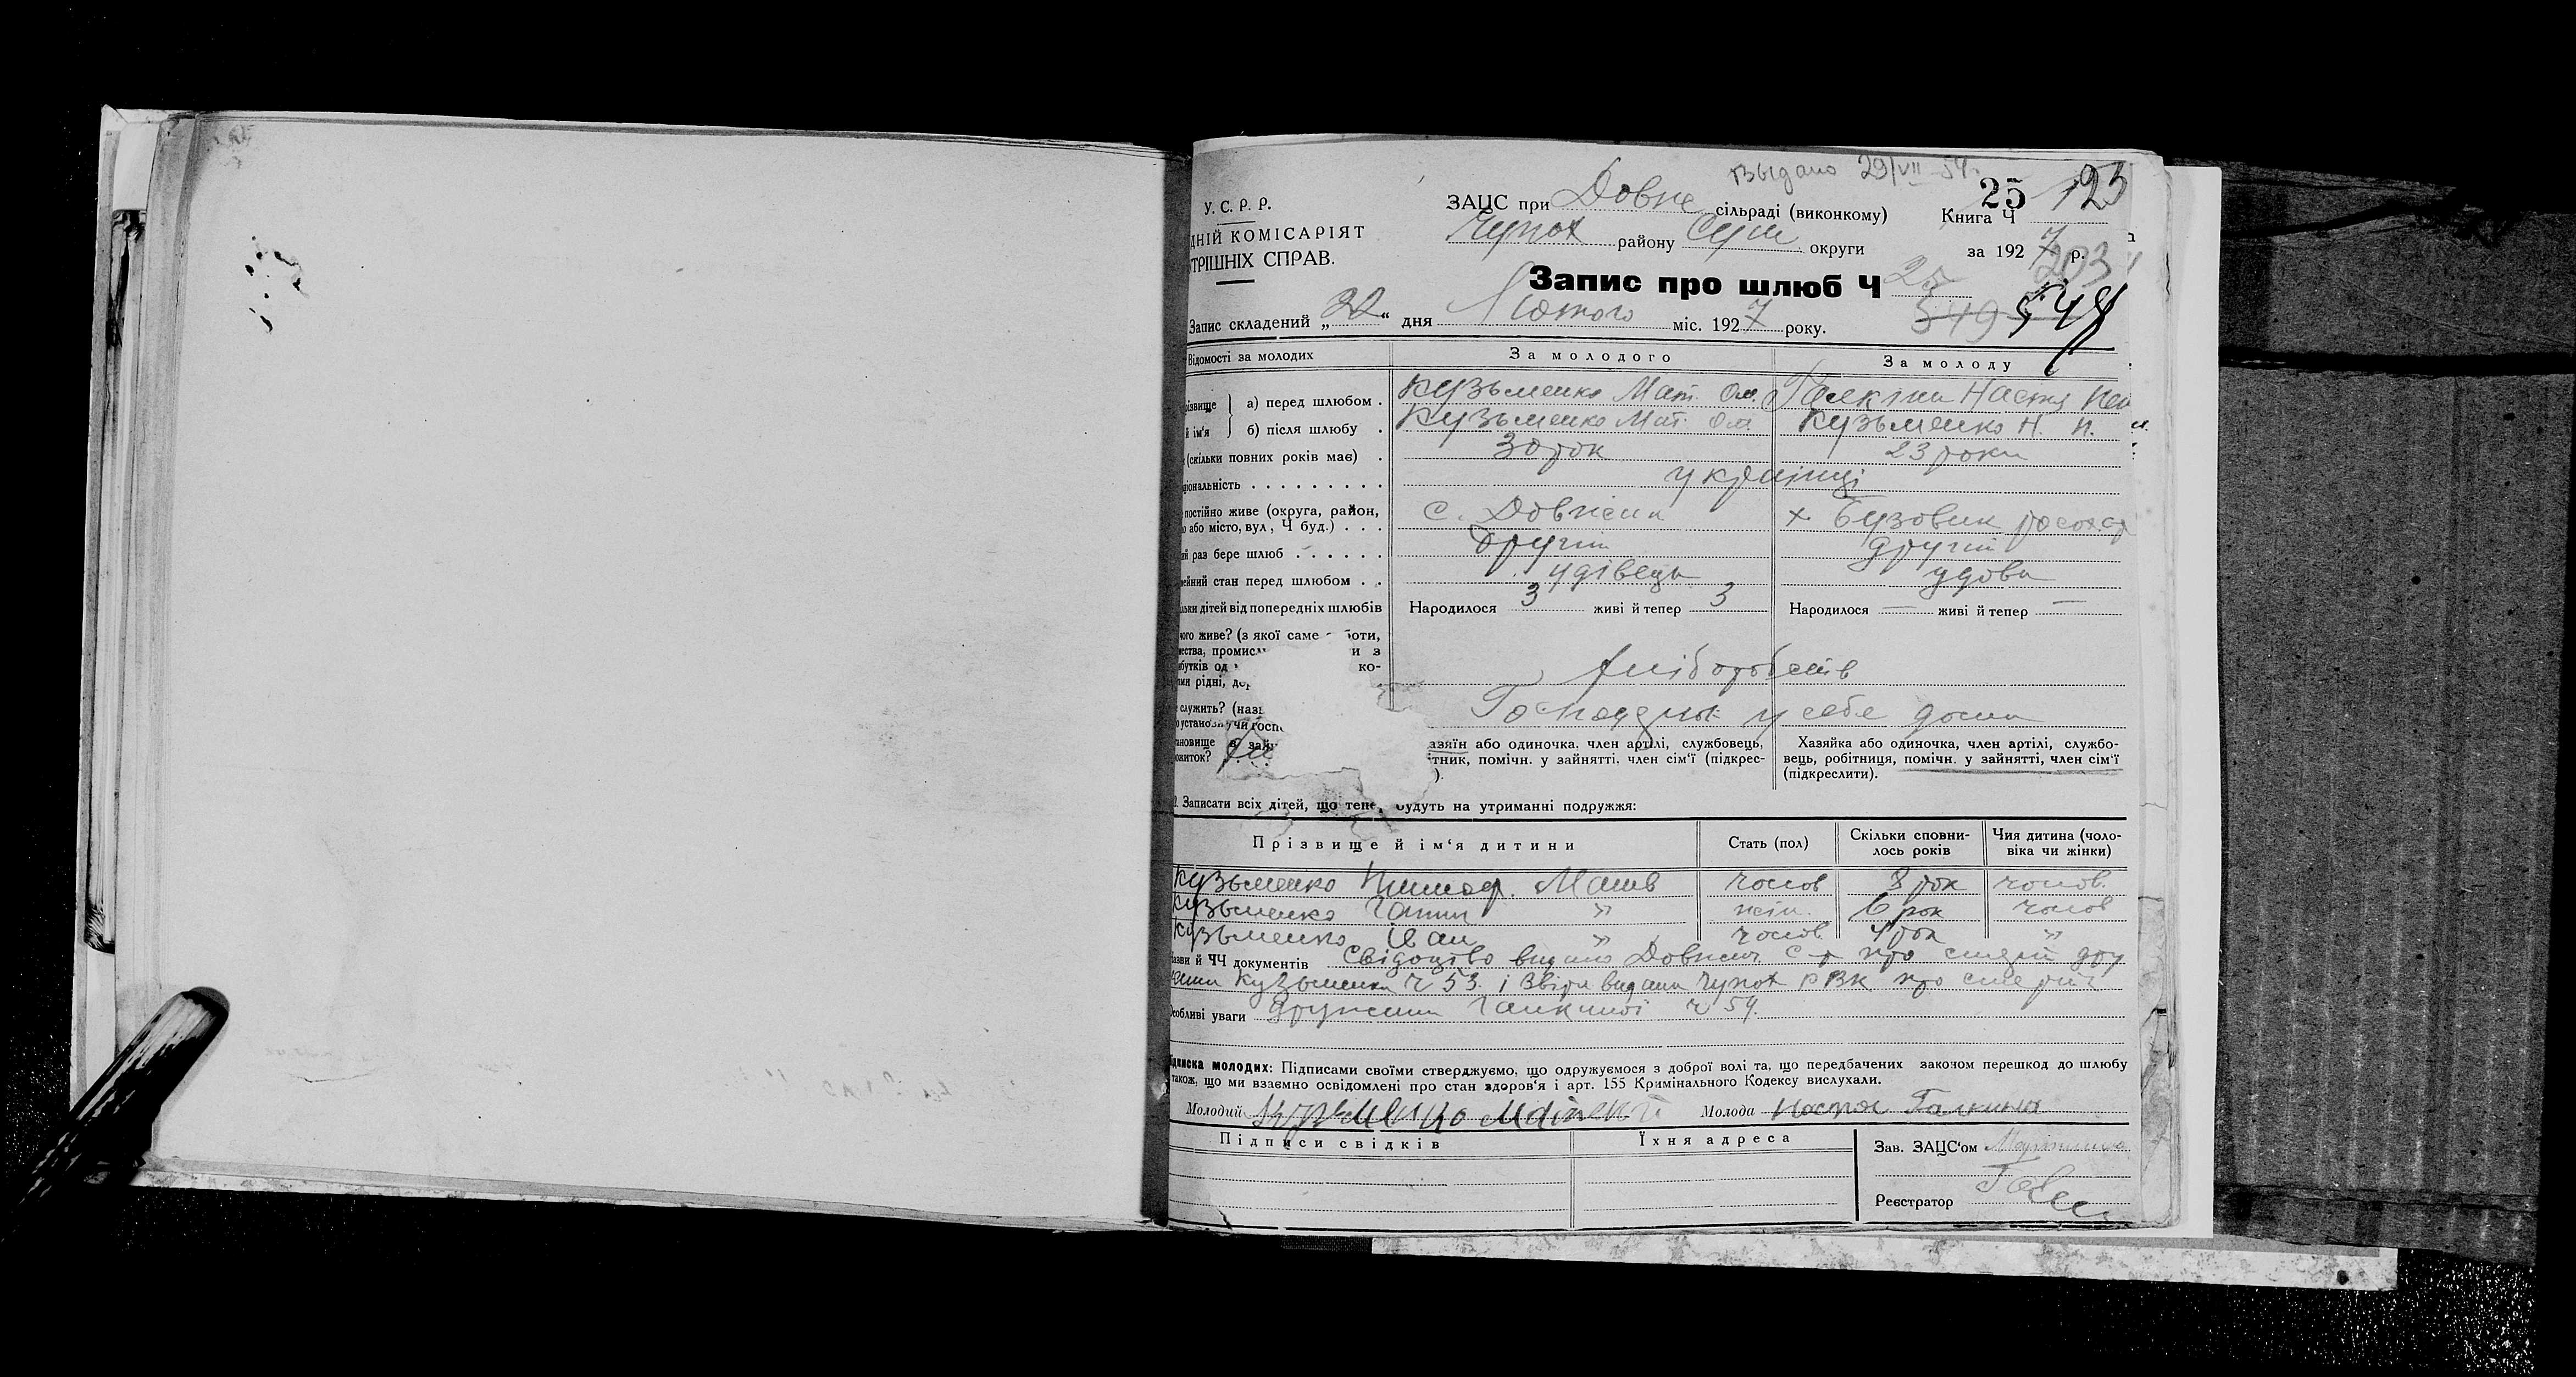 Выдано 29/VII 54.
У. С. Р. Р.
ЗАЦС при Довж сільраді (виконкому)
25 123
Книга Ч
ДНІЙ КОМІСАРІЯТ
району Сум округи
за 1927 р.
ТРІШНІХ СПРАВ.
203
Запис про шлюб Ч 25
Запис складений „22“ дня Лютого міс. 1927 року.
549 548
Відомості за молодих За молодого За молоду
різвище а) перед шлюбом . Кузьменко Мат. Ом. Галкіна Настя
й ім'я б) після шлюбу . Кузьменко Мат. Ом Кузьменко Н. П.
(скільки повних років має) . 30 рок 23 роки
ціональність . . . . . . . . . українці
постійно живе (округа, район,
о або місто, вул, Ч буд.) . . . с. Довжик х Бузовик
ий раз бере шлюб . . . . . . Другий другий
ейний стан перед шлюбом . . удівець удова
льки дітей від попередніх шлюбів Народилося 3 живі й тепер 3 Народилося — живі й тепер —
чого живе? (з якої саме оти,
ества, промисл и з
бутків од ко-
ми рідні, де
Хліборобств
служить? (наз
о установ чи госп Господарює у себе дома
ановище в зайн
житок?
азяїн або одиночка, член артілі, службовець,
тник, помічн. у зайнятті, член сім'ї (підкрес-
).
Хазяйка або одиночка, член артілі, службо-
вець, робітниця, помічн. у зайнятті, член сім'ї
(підкреслити).
Записати всіх дітей, що тепе будуть на утриманні подружжя:
Прізвище й ім'я дитини Стать (пол) Скільки сповни-
лось років Чия дитина (чоло-
віка чи жінки)
Кузьменко Матв чолов 8 рок чолов.
Кузьменко Ганна " жін. 6 рок чолов
Кузьменко Іван " чолов. 4 рок "
азви й ЧЧ документів Свідоцтво видано Довжич С-р про смерть дру
жини Кузьменка Ч 53. і видани РВК про смерть
собливі уваги дружини Галкиної ч 54.
дписка молодих: Підписами своїми стверджуємо, що одружуємося з доброї волі та, що передбачених законом перешкод до шлюбу
також, що ми взаємно освідомлені про стан здоров'я і арт. 155 Кримінального Кодексу вислухали.
Молодий Кузьменко Матвей Молода Настя Галкина
Підписи свідків Їхня адреса
Зав. ЗАЦС'ом
Реєстратор